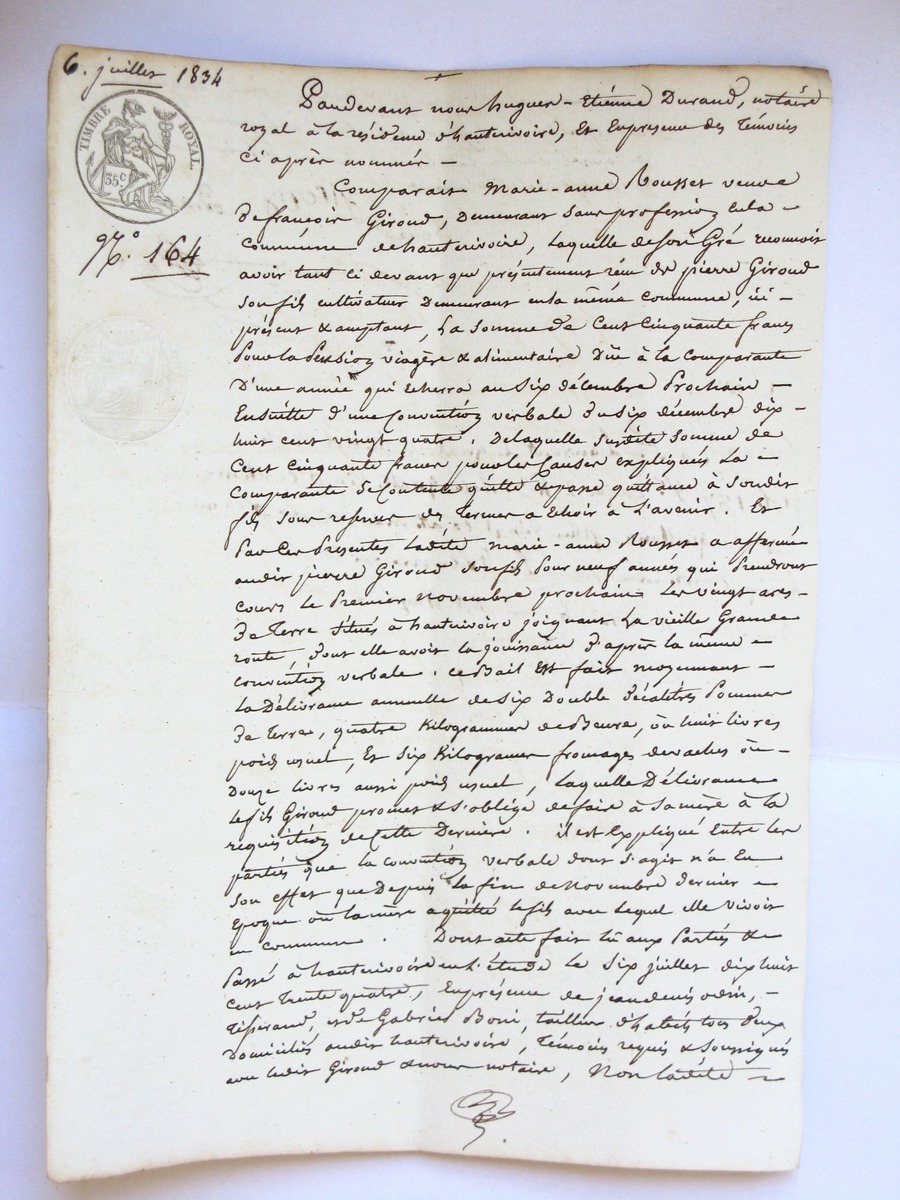 6. juillet 1834
TIMBRE ROYAL.
35 c
N.º 164
Pardevant nous hugues-Etiénne Durand, notaire
royal à la résidence d'hauterivoire, Et Enpresence des Témoins
ci après nommés —
Comparait Marie-anne Rousset veuve
de françois Giroud, Demeurant sans profession Enla —
Commune de hauterivoire, laquelle de son Gré reconnoit
avoir tant ci devant que présentement réçu de pierre Giroud
son fils cultivateur Demeurant en sa même commune, ici —
présent & acceptant, La somme de Cent Cinquante francs
Pour la Pension viagère & alimentaire Düe à la Comparante
D'une année qui Echerra au Six décembre Prochain —
En suitte d'une Convention verbale du six décembre dix —
huit cent vingt quatre. De laquelle susdite somme de
Cent Cinquante francs pour les Causes expliqués La —
Comparante se Contente quitte & passe quittance à Soudit
fils sous reserve des Termes a Echoir à L'avenir. Et
Par Ces Presentes Ladite marie-anne Rousset a affermé
audit pierre Giroud son fils Pour neuf années qui Prendront
cours le Premier novembre prochain Les vingt ares —
De Terre Situés à hauterivoire joignant La vieille Grande
route, dont elle avoit la jouissance d'après la même —
convention verbale. ce Bail Est fait moyennant —
La Délivrance annuelle de six Double décalitres Pommes
De Terre, quatre Kilogrammes de Beurre, ou huit livres
poids usuel, Et Six Kilogrames fromages de vaches ou —
Douze livres aussi poids usuel, Laquelle Délivrance
le fils Giroud promet & s'oblige de faire à sa mère à la
requisition de Cette Dernière. il est Expliqué Entre les
partiés que la convention verbale dont s'agit n'a Eu
son effet que Depuis la fin de Novembre Dernier —
Epoque où la mère a quitté le fils avec lequel elle vivoit
en commun. Dont acte fait lû aux Partiés &
Passé à hauterivoire en l'étude Le Six juillet dix huit
Cent Trente quatre, Enprésence de jean denis odin, —
Tisserand, et de Gabriel Boni, tailleur d'habits tous Deux
Domiciliés audit hauterivoire, Témoins requis & Soussignés
avec ledit Giroud & nous notaire, Non ladite —